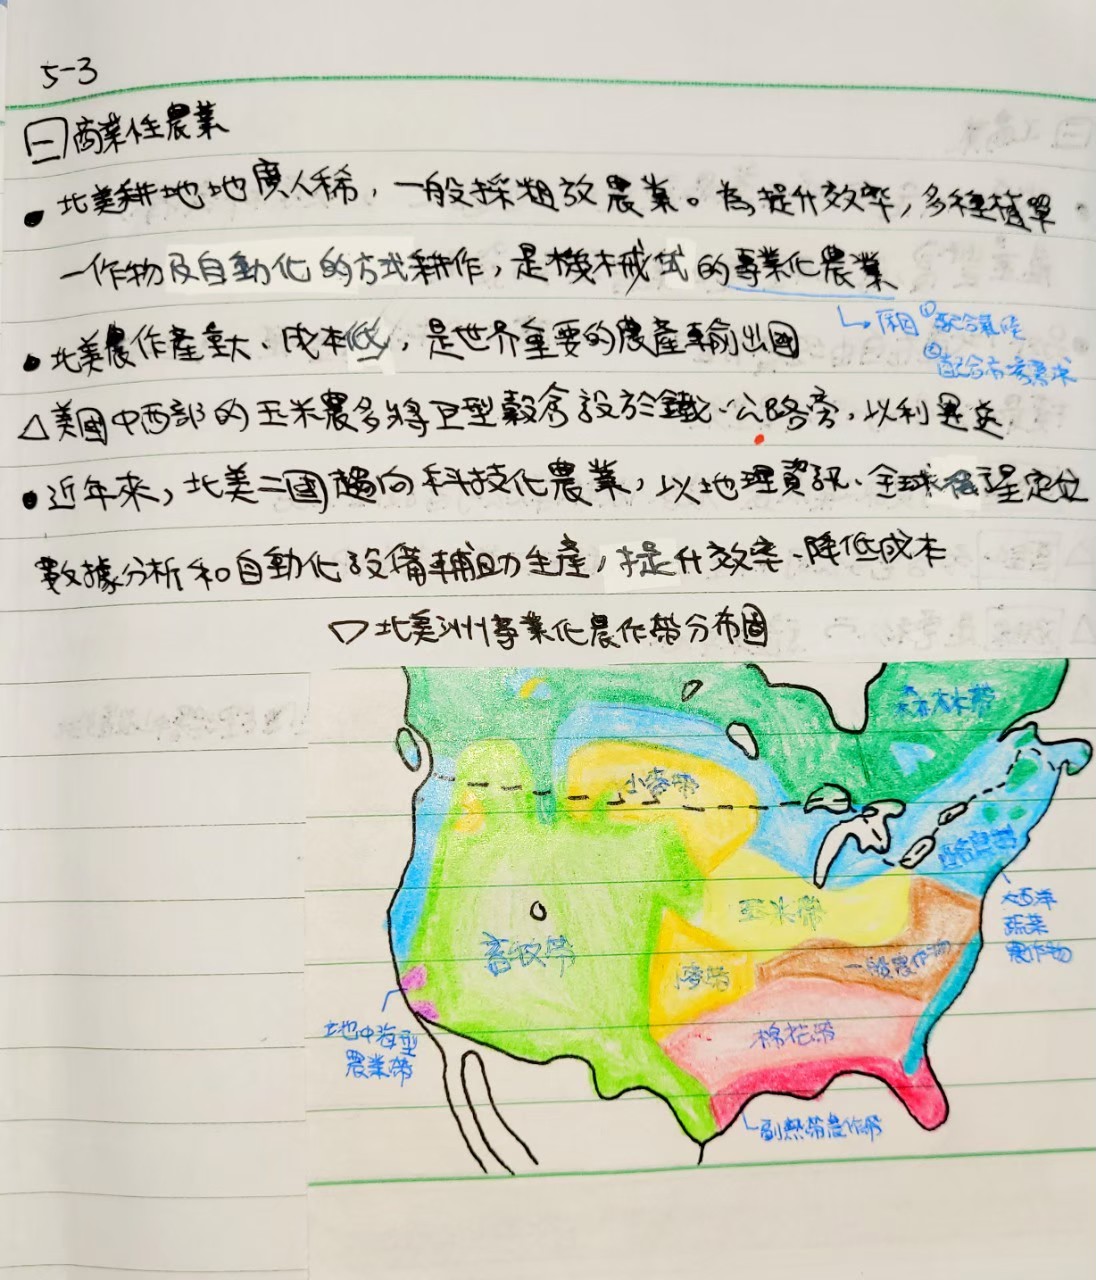 5-3
一 商業性農業
• 北美耕地地廣人稀，一般採粗放農業。為提升效率，多種植單
一作物及自動化的方式耕作，是機械式的專業化農業
↳ 原因 ①配合氣候
②配合市場需求
• 北美農作產量大、成本低，是世界重要的農產輸出國
△美國中西部的玉米農多將巨型穀倉設於鐵、公路旁，以利運送
• 近年來，北美二國趨向科技化農業，以地理資訊、全球衛星定位
數據分析和自動化設備輔助生產，提升效率、降低成本
▽北美洲專業化農作帶分布圖
森林帶
小麥帶
酪農帶
玉米帶
大西洋
蔬菜
農作物
畜牧帶
小麥帶
一般農作物
地中海型
農業帶
棉花帶
副熱帶農作帶